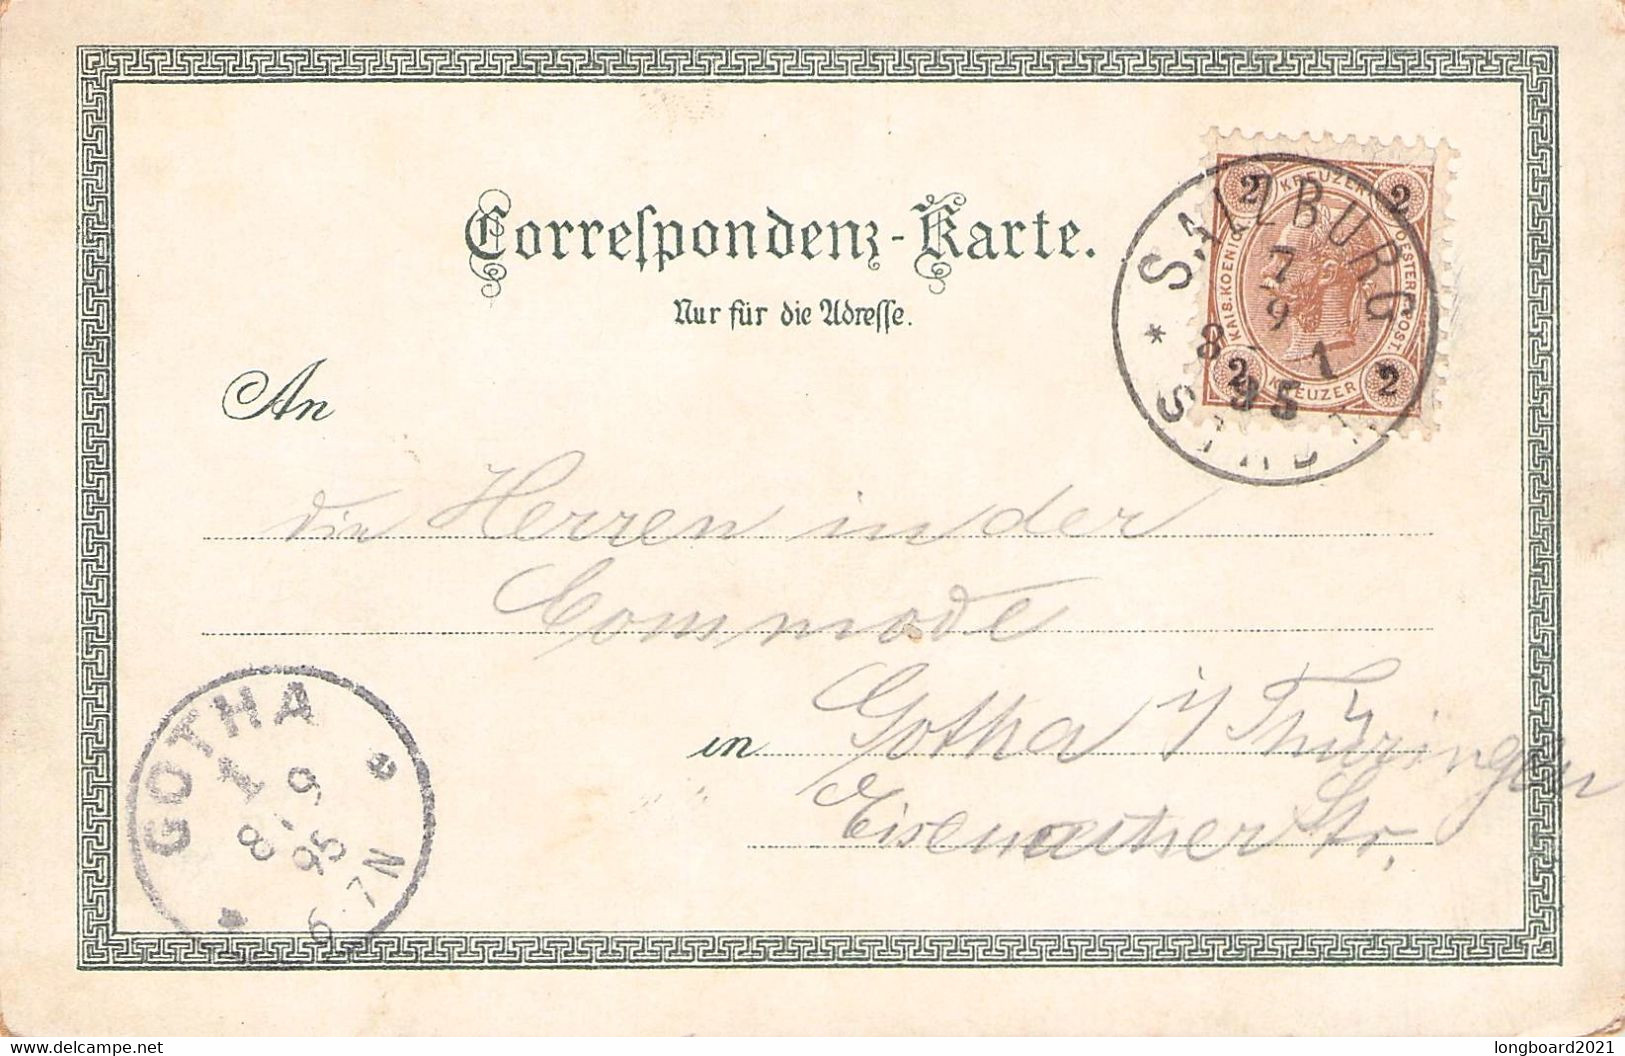 Correspondenz-Karte.
Nur für die Adresse.
KREUZER
KAIS. KOENIGL.
OESTERR. POST.
KREUZER
2 2
2 2
SALZBURG
7
9
8 - 1
95
STADT
An
die Herren in der
Commode
in Gotha i/Thüringen
Eisenacher Str.
GOTHA
1
8. 9
95
6-7N
www.delcampe.net
longboard2021